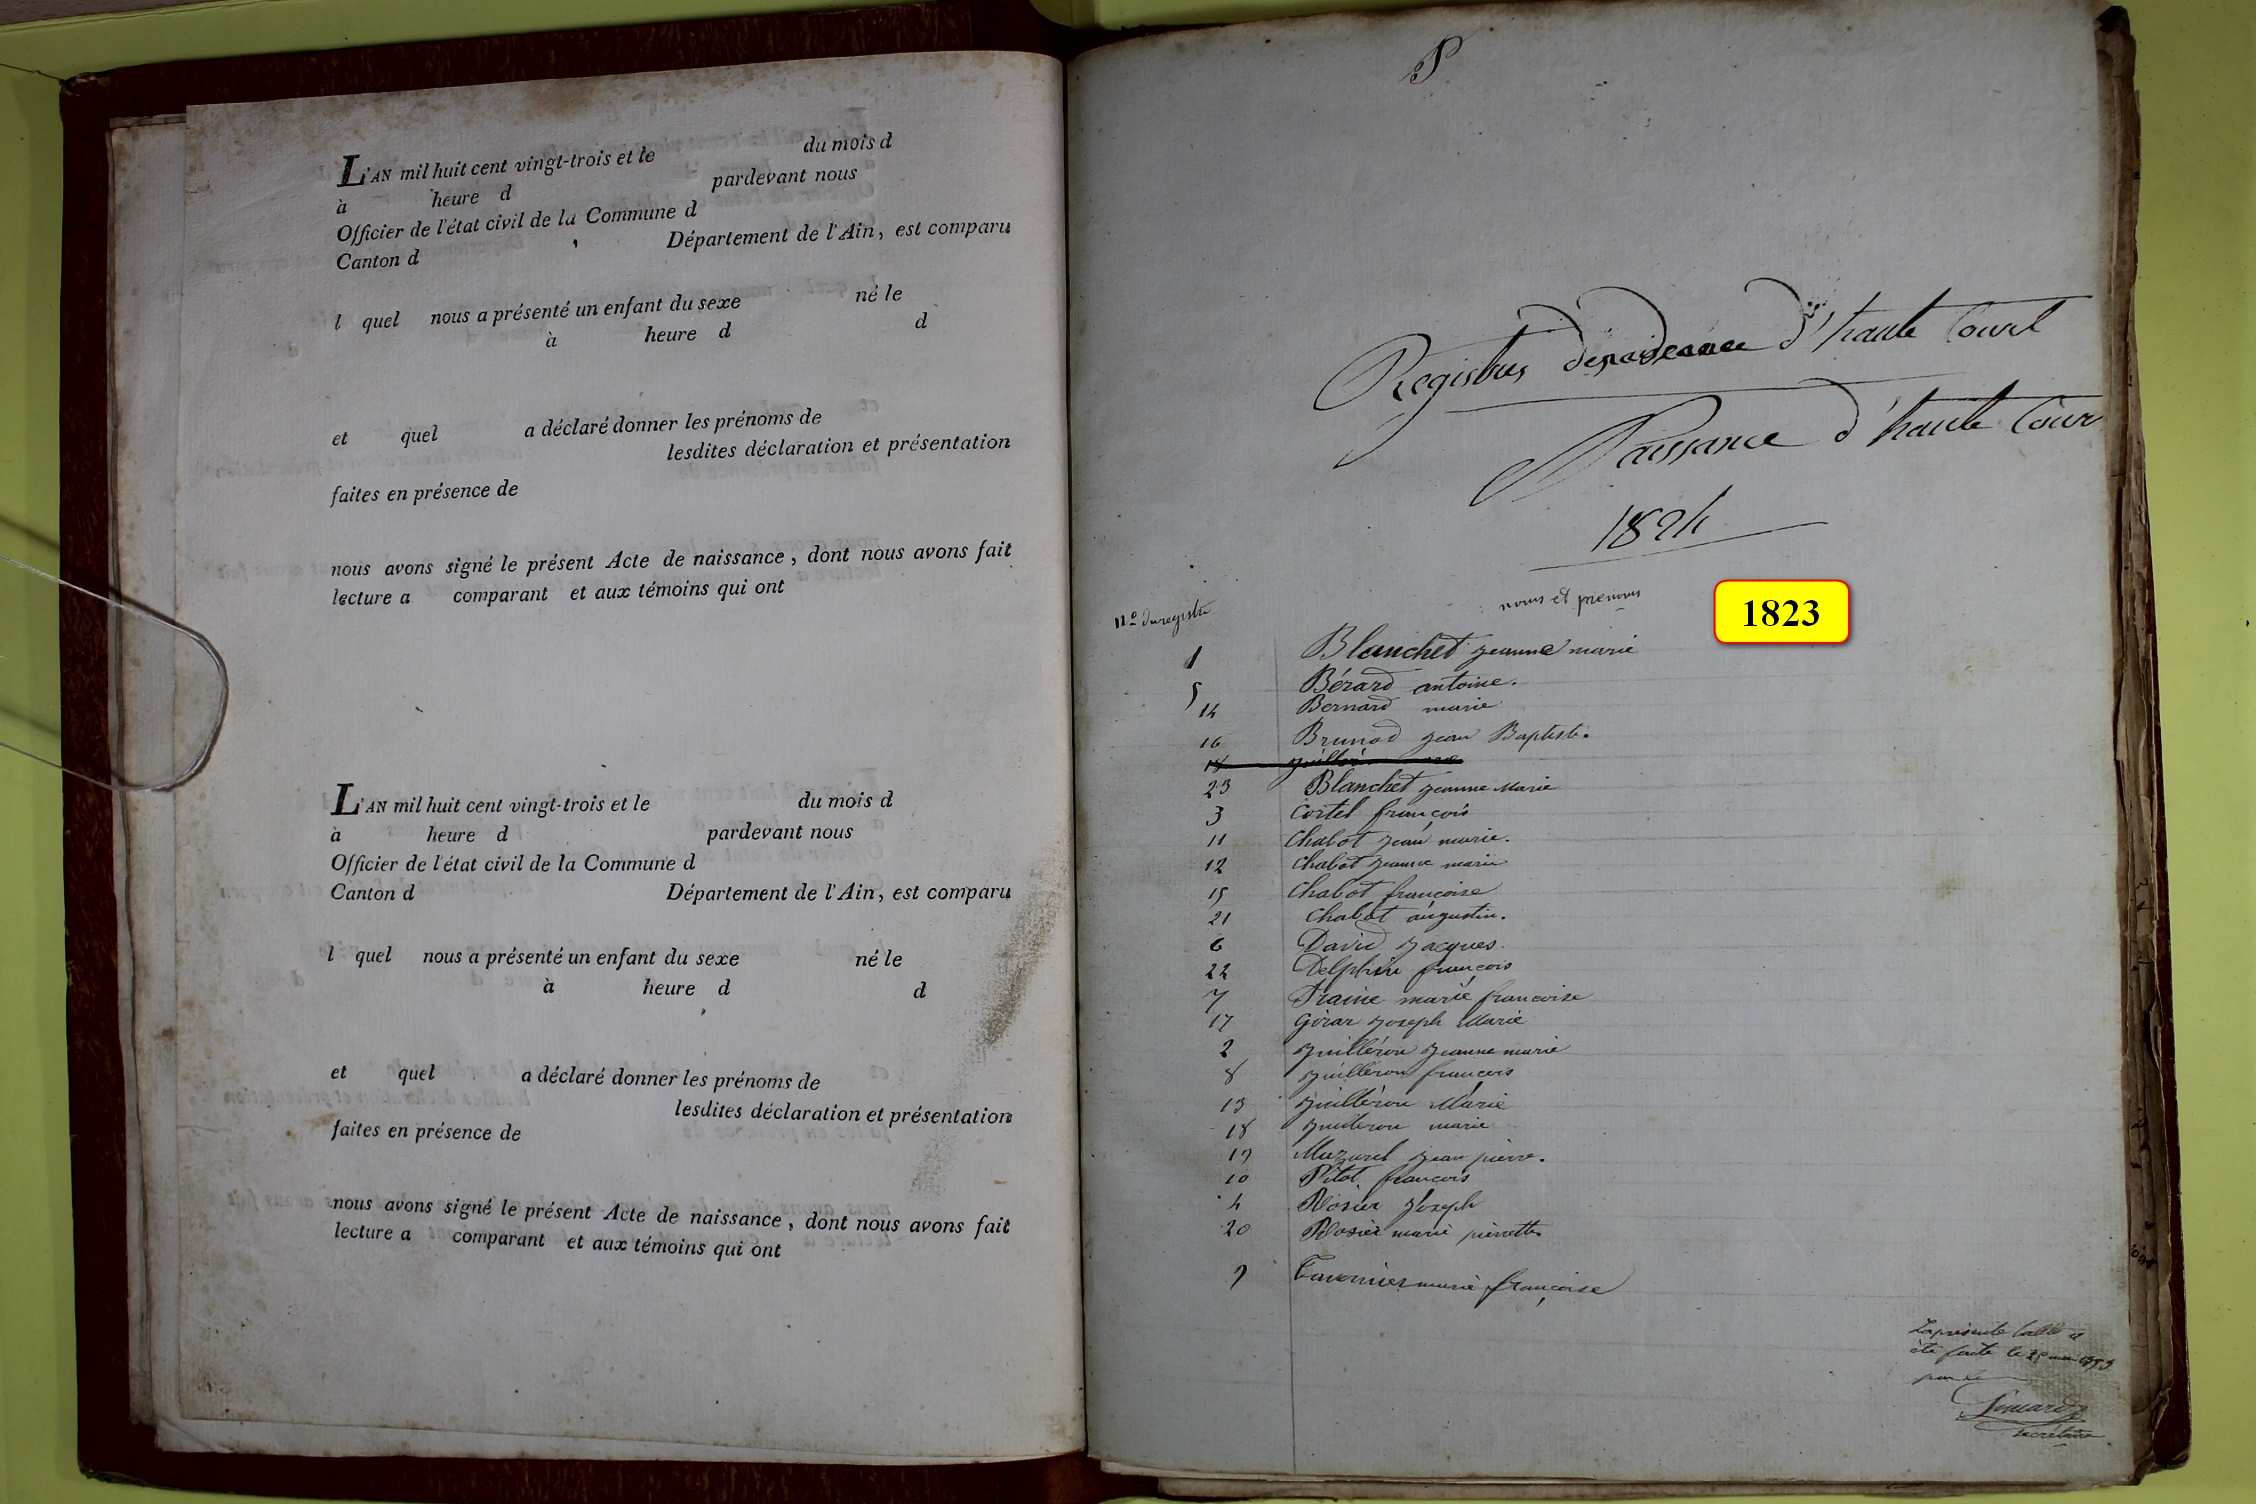 L'AN mil huit cent vingt-trois et le du mois d
à heure d pardevant nous
Officier de l'état civil de la Commune d
Canton d Département de l'Ain, est comparu
l quel nous a présenté un enfant du sexe né le
à heure d d
et quel a déclaré donner les prénoms de
lesdites déclaration et présentation
faites en présence de
nous avons signé le présent Acte de naissance, dont nous avons fait
lecture a comparant et aux témoins qui ont
L'AN mil huit cent vingt-trois et le du mois d
à heure d pardevant nous
Officier de l'état civil de la Commune d
Canton d Département de l'Ain, est comparu
l quel nous a présenté un enfant du sexe né le
à heure d d
et quel a déclaré donner les prénoms de
lesdites déclaration et présentation
faites en présence de
nous avons signé le présent Acte de naissance, dont nous avons fait
lecture a comparant et aux témoins qui ont
P
Registres d'haute Court
Naissance d'haute Cour
1824
n.o du registre noms et prenoms
1823
1 Blanchet jeanne marie
5 Bérard antoine.
14 Bernard marie
16 Brunod jean Baptiste.
18
23 Blanchet jeanne Marie
3 Cortel françois
11 Chabot jean marie.
12 Chabot jeanne marie
15 Chabot francoise
21 Chabot augustin.
6 David jacques.
22 Delphin francois
7 Fraine marie francoise
17 Girar joseph Marie
2 juilléron jeanne marie
8 juilleron francois
13 juilléron Marie
18 juilleron marie
19 Muzurel jean pierre.
10 Pitot francois
4 Rosier joseph
20 Rosier marie pierrette
9 Tavernier marie françoise
La présente table a
été faite le
secrétaire